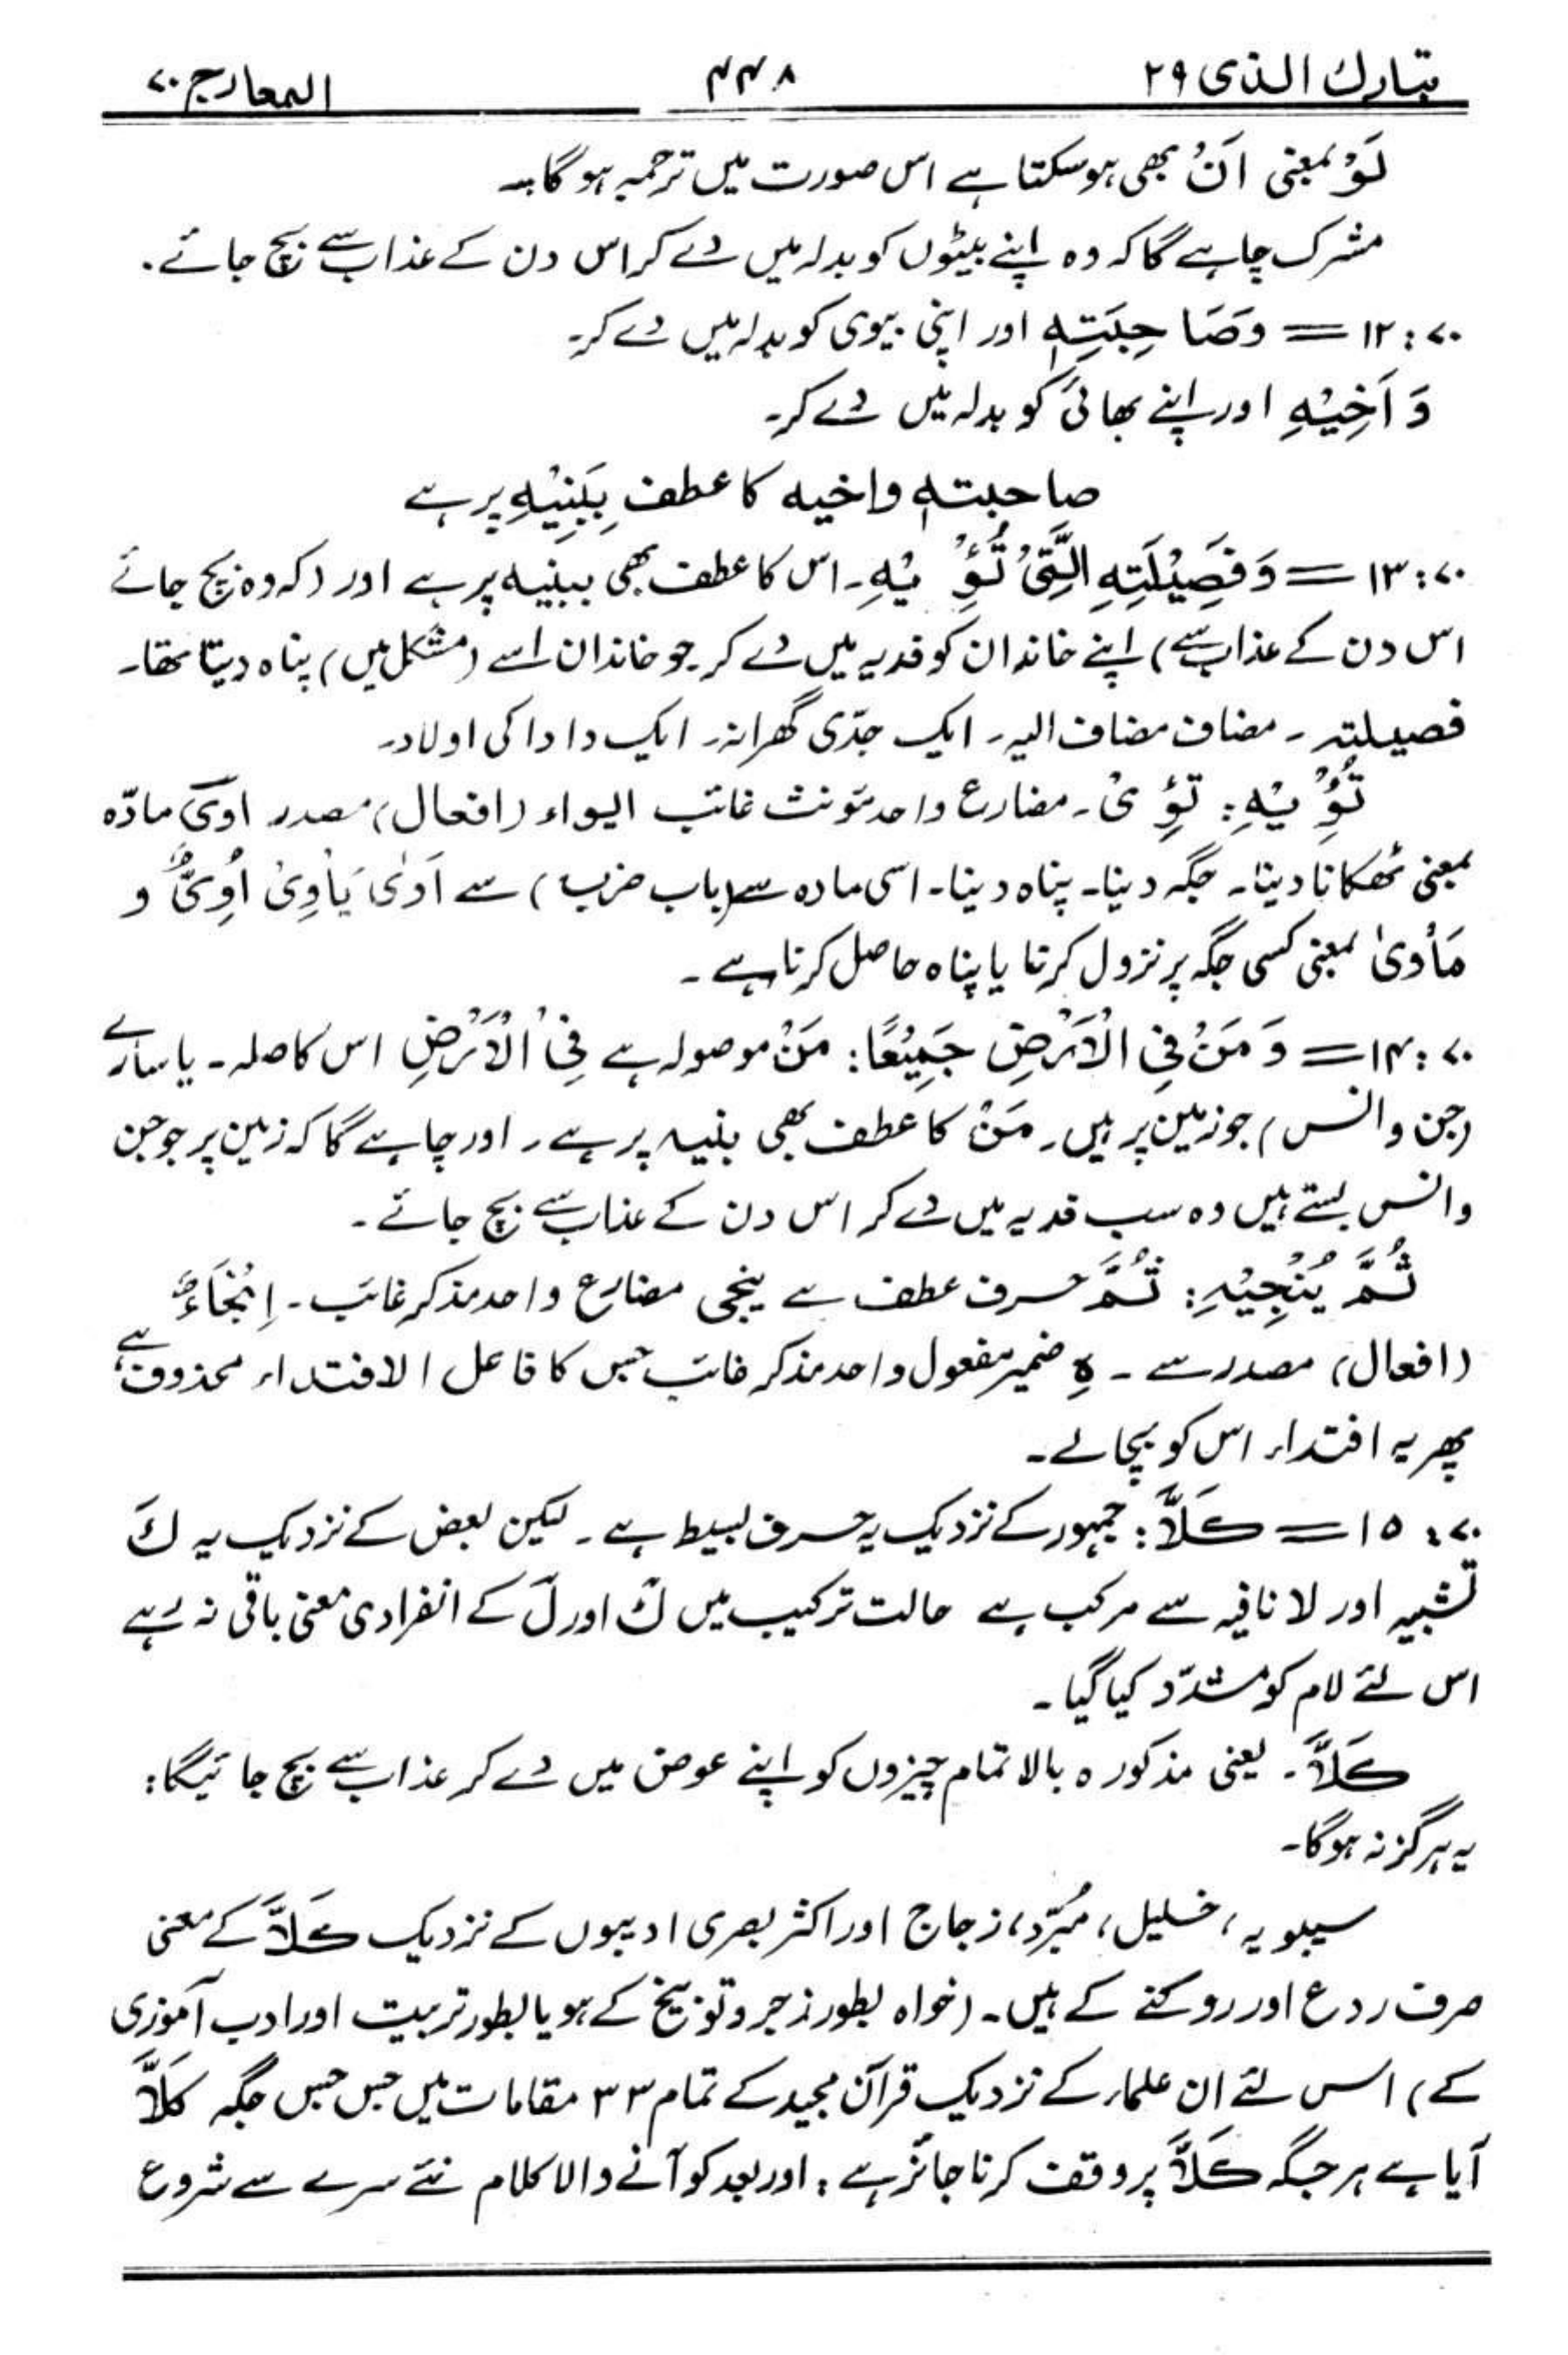 تبارك الذی ۲۹ ۴۴۸ المعارج ۷۰
لَوْ بمعنی اَنْ بھی ہوسکتا ہے اس صورت میں ترجمہ ہوگا :۔
مشرک چاہے گا کہ وہ اپنے بیٹوں کو بدلہ میں دے کر اس دن کے عذاب سے بچ جائے۔
۷۰: ۱۲ = وَصَاحِبَتِہٖ اور اپنی بیوی کو بدلہ میں دے کر۔
وَ اَخِیْہِ اور اپنے بھائی کو بدلہ میں دے کر۔
صاحبتہٖ واخیہ کا عطف بِبَنِیْہِ پر ہے
۷۰: ۱۳ = وَ فَصِیْلَتِہِ الَّتِیْ تُؤْ یْہِ۔ اس کا عطف بھی ببنیہ پر ہے اور (کہ وہ بچ جائے
اس دن کے عذاب سے) اپنے خاندان کو فدیہ میں دے کر جو خاندان اسے (مشکل میں) پناہ دیتا تھا۔
فصیلتہ ۔ مضاف مضاف الیہ ۔ ایک جدّی گھرانہ۔ ایک دادا کی اولاد۔
تُؤْ یْہِ: تؤِیْ۔ مضارع واحد مؤنث غائب ایواء (افعال) مصدر اوی مادّہ
بمعنی ٹھکانا دینا۔ جگہ دینا۔ پناہ دینا۔ اسی مادہ سے (باب ضرب) سے اَوٰی یَاْوِیْ اُوِیٌّ و
مَأوٰی بمعنی کسی جگہ پر نزول کرنا یا پناہ حاصل کرنا ہے ۔
۷۰: ۱۴ = وَ مَنْ فِی الْاَرْضِ جَمِیْعًا: مَنْ موصولہ ہے فِی الْاَرْضِ اس کا صلہ ۔ یا سارے
(جن وانس) جو زمین پر ہیں۔ مَنْ کا عطف بھی بنیہ پر ہے۔ اور چاہے گا کہ زمین پر جو جن
وانس بستے ہیں وہ سب فدیہ میں دے کر اس دن کے عذاب سے بچ جائے ۔
ثُمَّ یُنْجِیْہِ: ثُمَّ حرف عطف ہے ینجی مضارع واحد مذکر غائب ۔ اِنْجَاءٌ
(افعال) مصدر سے ۔ ہِ ضمیر مفعول واحد مذکر غائب جس کا فاعل الافتداء محذوف ہے
پھر یہ افتداء اس کو بچالے۔
۷۰: ۱۵ = کَلَّا: جمہور کے نزدیک یہ حرف بسیط ہے ۔ لیکن بعض کے نزدیک یہ كَ
تشبیہ اور لا نافیہ سے مرکب ہے حالت ترکیب میں كَ اور لَ کے انفرادی معنی باقی نہ رہے
اس لئے لام کو مشدّد کیا گیا ۔
کَلَّا ۔ یعنی مذکورہ بالا تمام چیزوں کو اپنے عوض میں دے کر عذاب سے بچ جائیگا:
یہ ہرگز نہ ہوگا۔
سیبویہ، خلیل، مُبرّد، زجاج اور اکثر بصری ادیبوں کے نزدیک کَلَّا کے معنی
صرف ردع اور روکنے کے ہیں۔ (خواہ بطور زجر و توبیخ کے ہو یا بطور تربیت اور ادب آموزی
کے) اس لئے ان علماء کے نزدیک قرآن مجید کے تمام ۳۳ مقامات میں جس جس جگہ کَلَّا
آیا ہے ہر جگہ کَلَّا پر وقف کرنا جائز ہے : اور بعد کو آنے والا کلام نئے سرے سے شروع